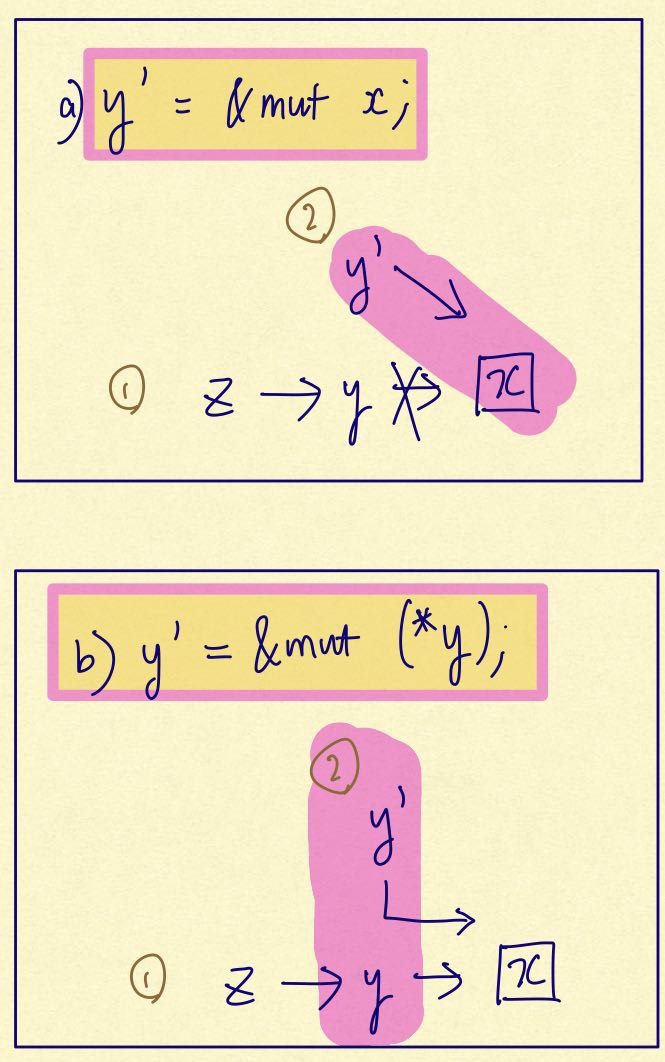 a) y' = &mut x;
②
y' → x
① z → y → x
b) y' = &mut (*y);
②
y'
① z → y → x